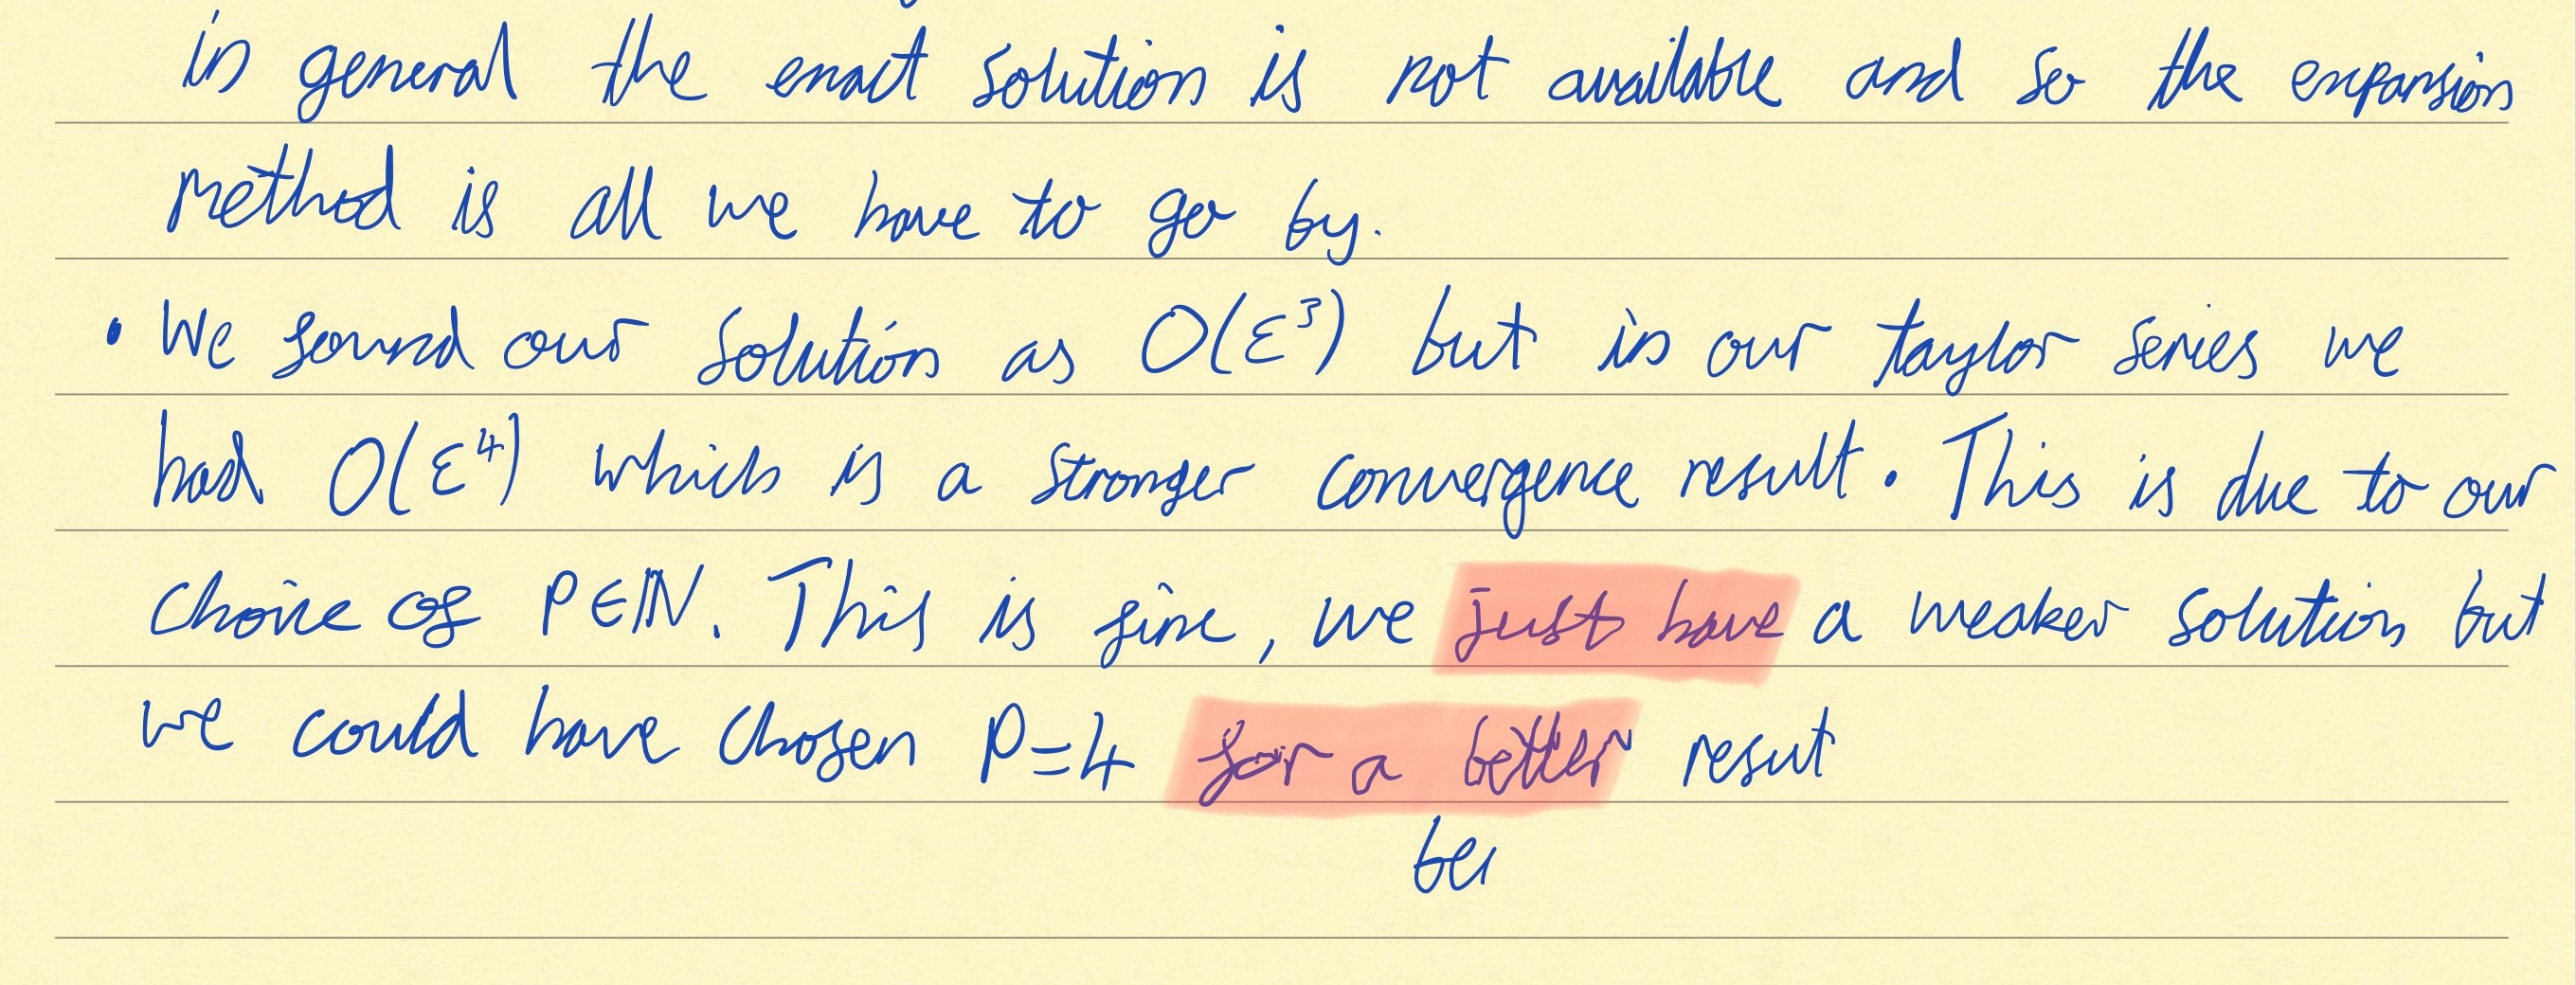 in general the exact solution is not available and so the expansion
method is all we have to go by.
• We found our solution as O(ε³) but in our taylor series we
had O(ε⁴) which is a stronger convergence result. This is due to our
choice of P∈ℕ. This is fine, we just have a weaker solution but
we could have chosen P=4 for a better resut